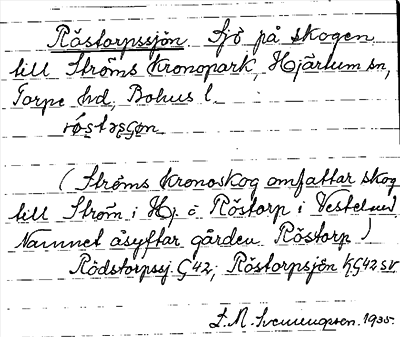 Röstorpssjön Sjö på skogen
till Ströms Kronopark, Hjärtum sn,
Torpe hd, Bohus l.
röstəsǥən
(Ströms Kronoskog omfattar skog
till Ström i Hj. o Röstorp i Västerl.
Namnet åsyftar gården Röstorp)
Rödstorpssj G42, Röstorpsjön G42 SV
1935.